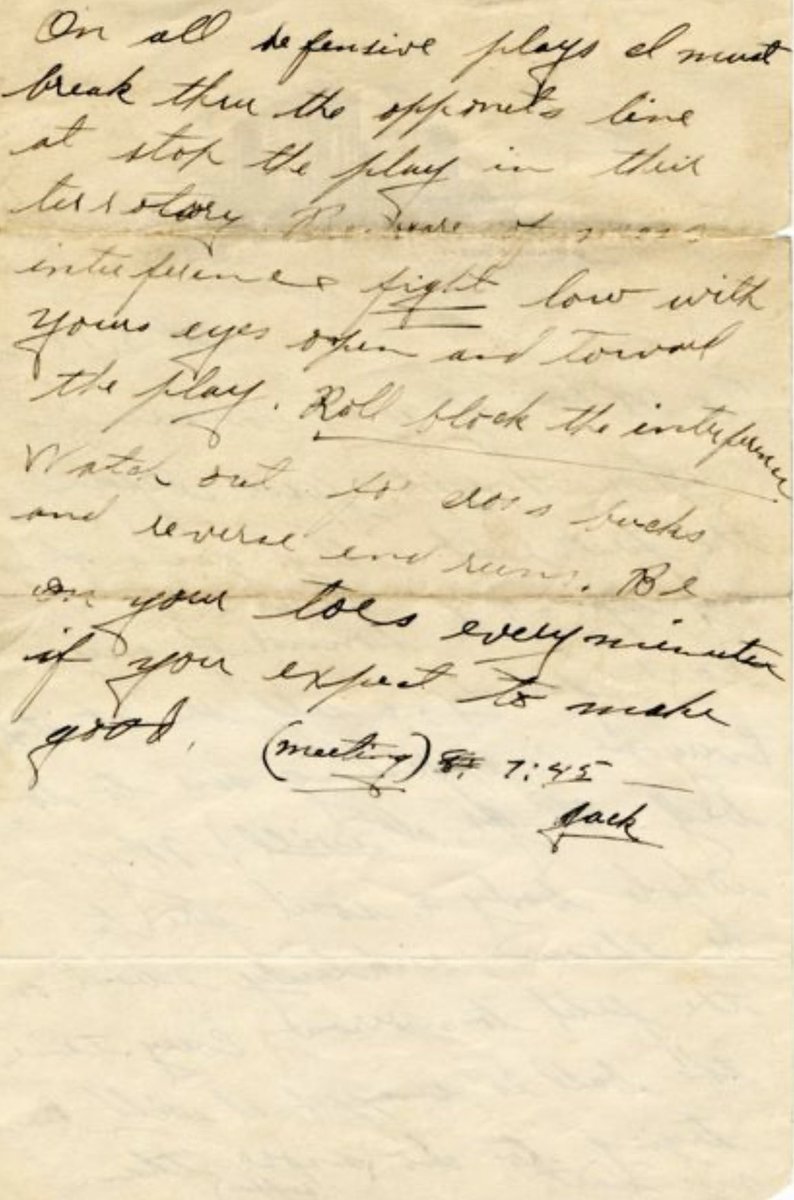 On all defensive plays I must
break thru the opponets line
at stop the play in their
terrotory. Beware of mass
interference fight low with
yours eyes open and toward
the play. Roll block the interference
Watch out for cross bucks
and reverse end runs. Be
on your toes every minutes
if you expect to make
good. (meeting) 7:45 —
Jack